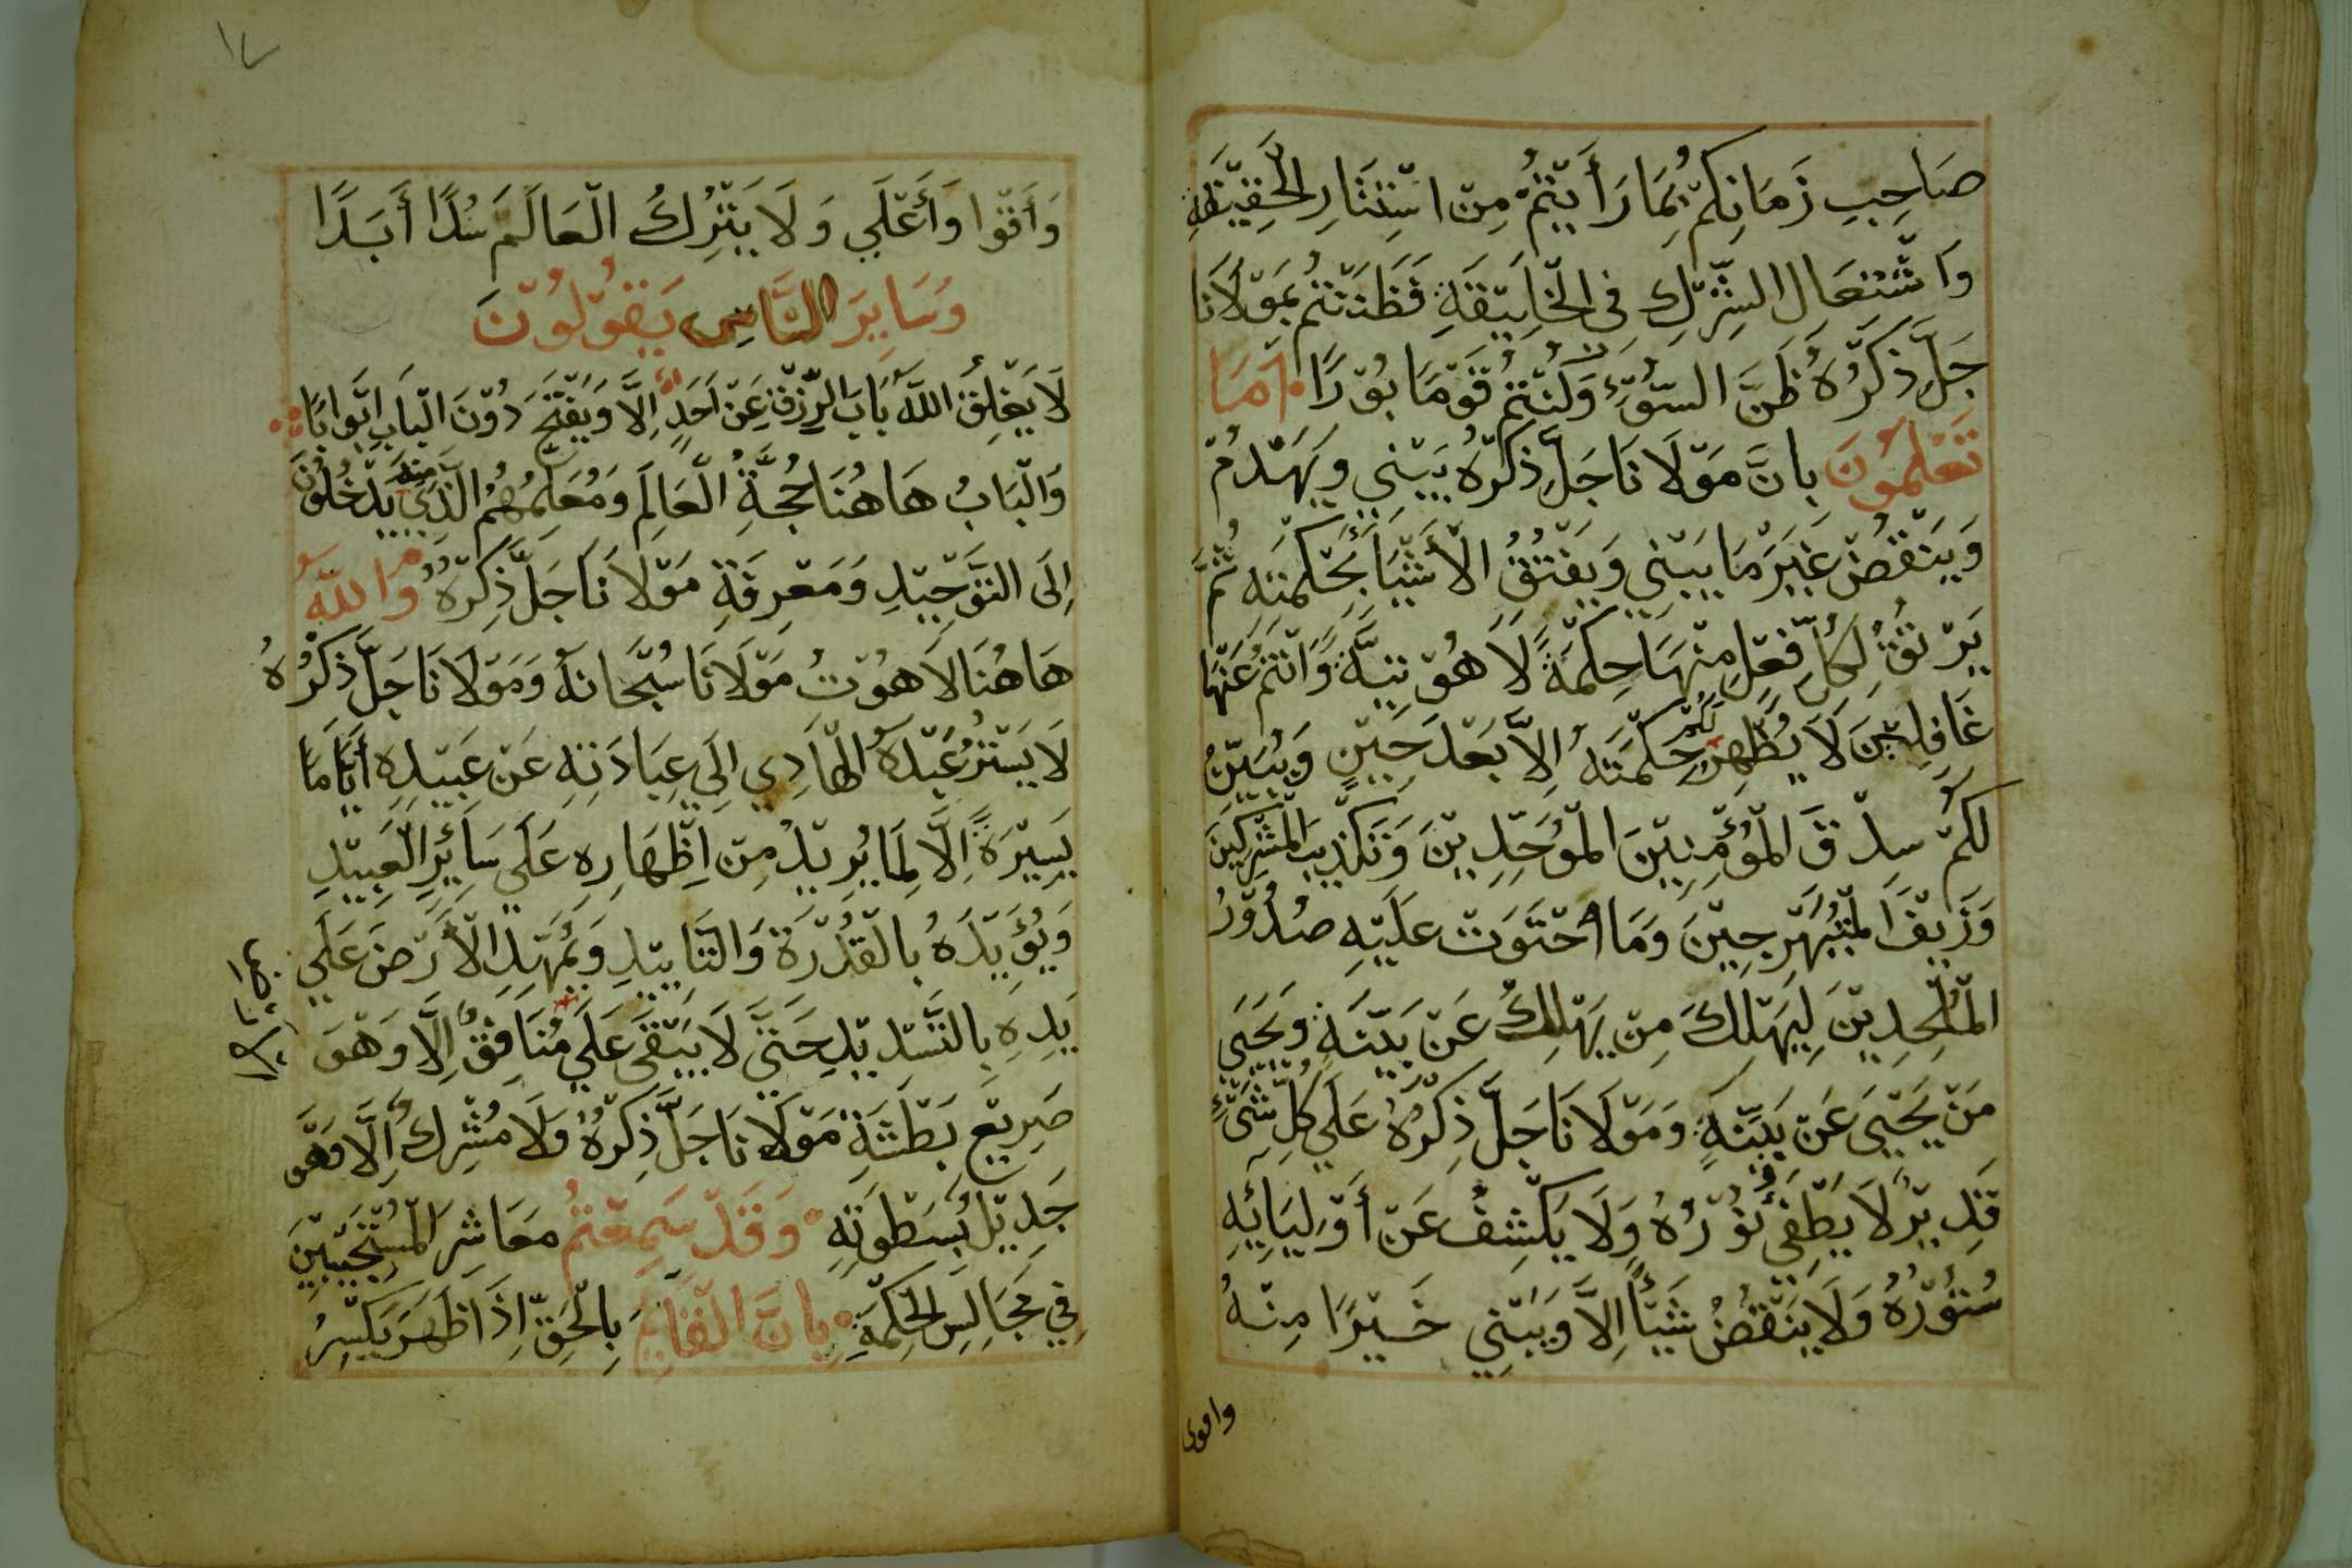 صَاحِبِ زَمَانِكُمْ بِمَا رَأَيْتُمْ مِنْ اسْتِتَارِ الْحَقِيْقَةِ
وَاشْتِعَالِ الشِّرْكِ فِي الْخَلِيْقَةِ فَظَنَنْتُمْ بِمَوْلَانَا
جَلَّ ذِكْرُهُ ظَنَّ السَّوْءِ وَكُنْتُمْ قَوْمًا بُوْرًا امَا
تَعْلَمُوْنَ بِانَّ مَوْلَانَا جَلَّ ذِكْرُهُ يَبْنِي وَيَهْدُمْ
وَيَنْقُضْ غَيْرَ مَا يَبْنِي وَيَفْتُقُ الْأَشْيَاءَ بِحِكْمَتِهِ ثُمَّ
يَرْتُقُ لِكُلِّ فِعْلٍ مِنْهَا حِكْمَةً لَاهُوْتِيَّةً وَانْتُمْ عَنْهَا
غَافِلِيْنَ لَا يُظْهِرُ لَكُمْ حِكْمَتَهُ إِلَّا بَعْدَ حِيْنٍ وَيُبَيِّنُ
لَكُمْ سِدْقَ الْمُؤْمِنِيْنَ الْمُوَحِّدِيْنَ وَتَكْذِيْبَ الْمُشْرِكِيْنَ
وَزَيْفَ الْمُتَبَهْرِجِيْنَ وَمَا احْتَوَتْ عَلَيْهِ صُدُوْرُ
الْمُلْحِدِيْنَ لِيَهْلِكَ مِنْ يَهْلِكُ عَنْ بَيِّنَةٍ وَيَحْيَى
مَنْ يَحْيَى عَنْ بَيِّنَةٍ وَمَوْلَانَا جَلَّ ذِكْرُهُ عَلَي كُلِّ شَيْءٍ
قَدِيْرٌ لَا يَطْفِي نُوْرُهُ وَلَا يَكْشِفُ عَنْ أَوْلِيَائِهِ
سُتُوْرَهُ وَلَا يَنْقُضُ شَيْأً إِلَّا وَيَبْنِي خَيْرًا مِنْهُ
واقوى
وَأَقْوَا وَأَعْلَي وَلَا يَتْرُكُ الْعَالَمَ سُدًا أَبَدًا
وَسَايِرَ النَّاسِ يَقُوْلُوْنَ
لَا يَغْلِقُ اللَّهُ بَابَ الرِّزْقِ عَنْ احَدٍ إِلَّا وَيَفْتَحُ دُوْنَ الْبَابِ ابْوَابًا
وَالْبَابُ هَاهُنَا حُجَّةُ الْعَالَمِ وَمُعَلِّمُهُمُ الَّذِي مِنْهُ يَدْخُلُوْنَ
إِلَى التَّوْحِيْدِ وَمَعْرِفَةِ مَوْلَانَا جَلَّ ذِكْرُهُ وَاللَّهُ
هَاهُنَا لَاهُوْتُ مَوْلَانَا سُبْحَانَهُ وَمَوْلَانَا جَلَّ ذِكْرُهُ
لَا يَسْتُرُ عَبْدَهُ الْهَادِي إِلَي عِبَادَتِهِ عَنْ عَبِيْدِهِ أَيَّامًا
يَسِيْرَةً إِلَّا لِمَا يُرِيْدُ مِنْ إِظْهَارِهِ عَلَي سَائِرِ الْعَبِيْدِ
وَيُؤَيِّدَهُ بِالْقُدْرَةِ وَالتَّايِيْدِ وَيُمَهِّدِ الْأَرْضَ عَلَي
يَدِهِ بِالتَّسْدِيْدِ حَتَّي لَا يَبْقَى عَلَي مُنَافِقٌ إِلَّا وَهْوَ
صَرِيْعَ بَطْشَةِ مَوْلَانَا جَلَّ ذِكْرُهُ وَلَا مُشْرِكٌ إِلَّا وَهْوَ
جَدِيْلَ سَطْوَتِهِ وَقَدْ سَمِعْتُمْ مَعَاشِرَ الْمُسْتَجِيْبِيْنَ
فِي مَجَالِسِ الْحِكْمَةِ بِانَّ الْقَايِمَ بِالْحَقِّ إِذَا ظَهَرَ يَكْسِرُ